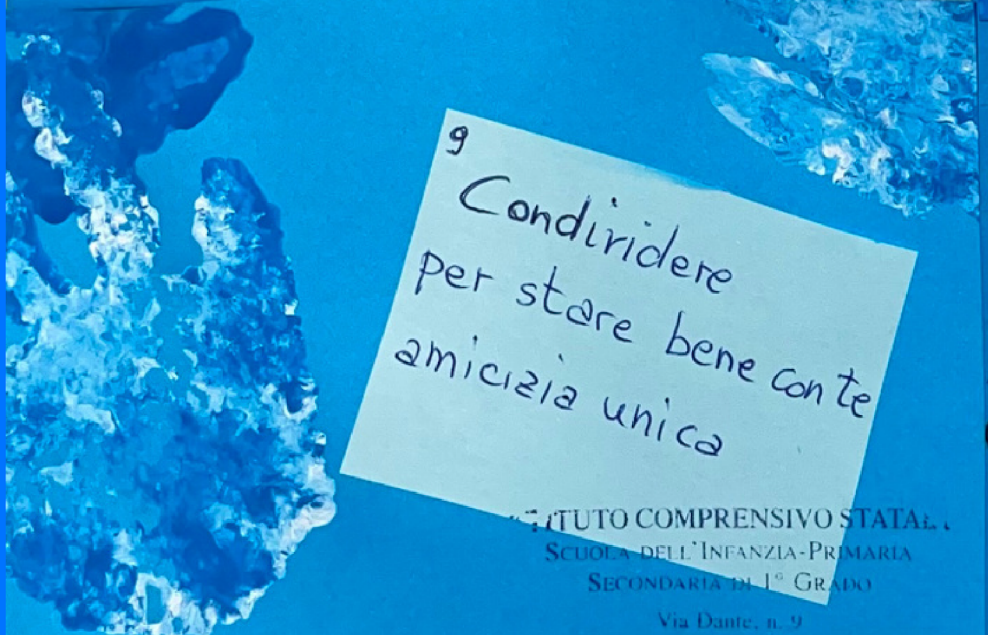 9
Condividere
per stare bene con te
amicizia unica
ISTITUTO COMPRENSIVO STATALE
SCUOLA DELL'INFANZIA-PRIMARIA
SECONDARIA DI 1° GRADO
Via Dante, n. 9